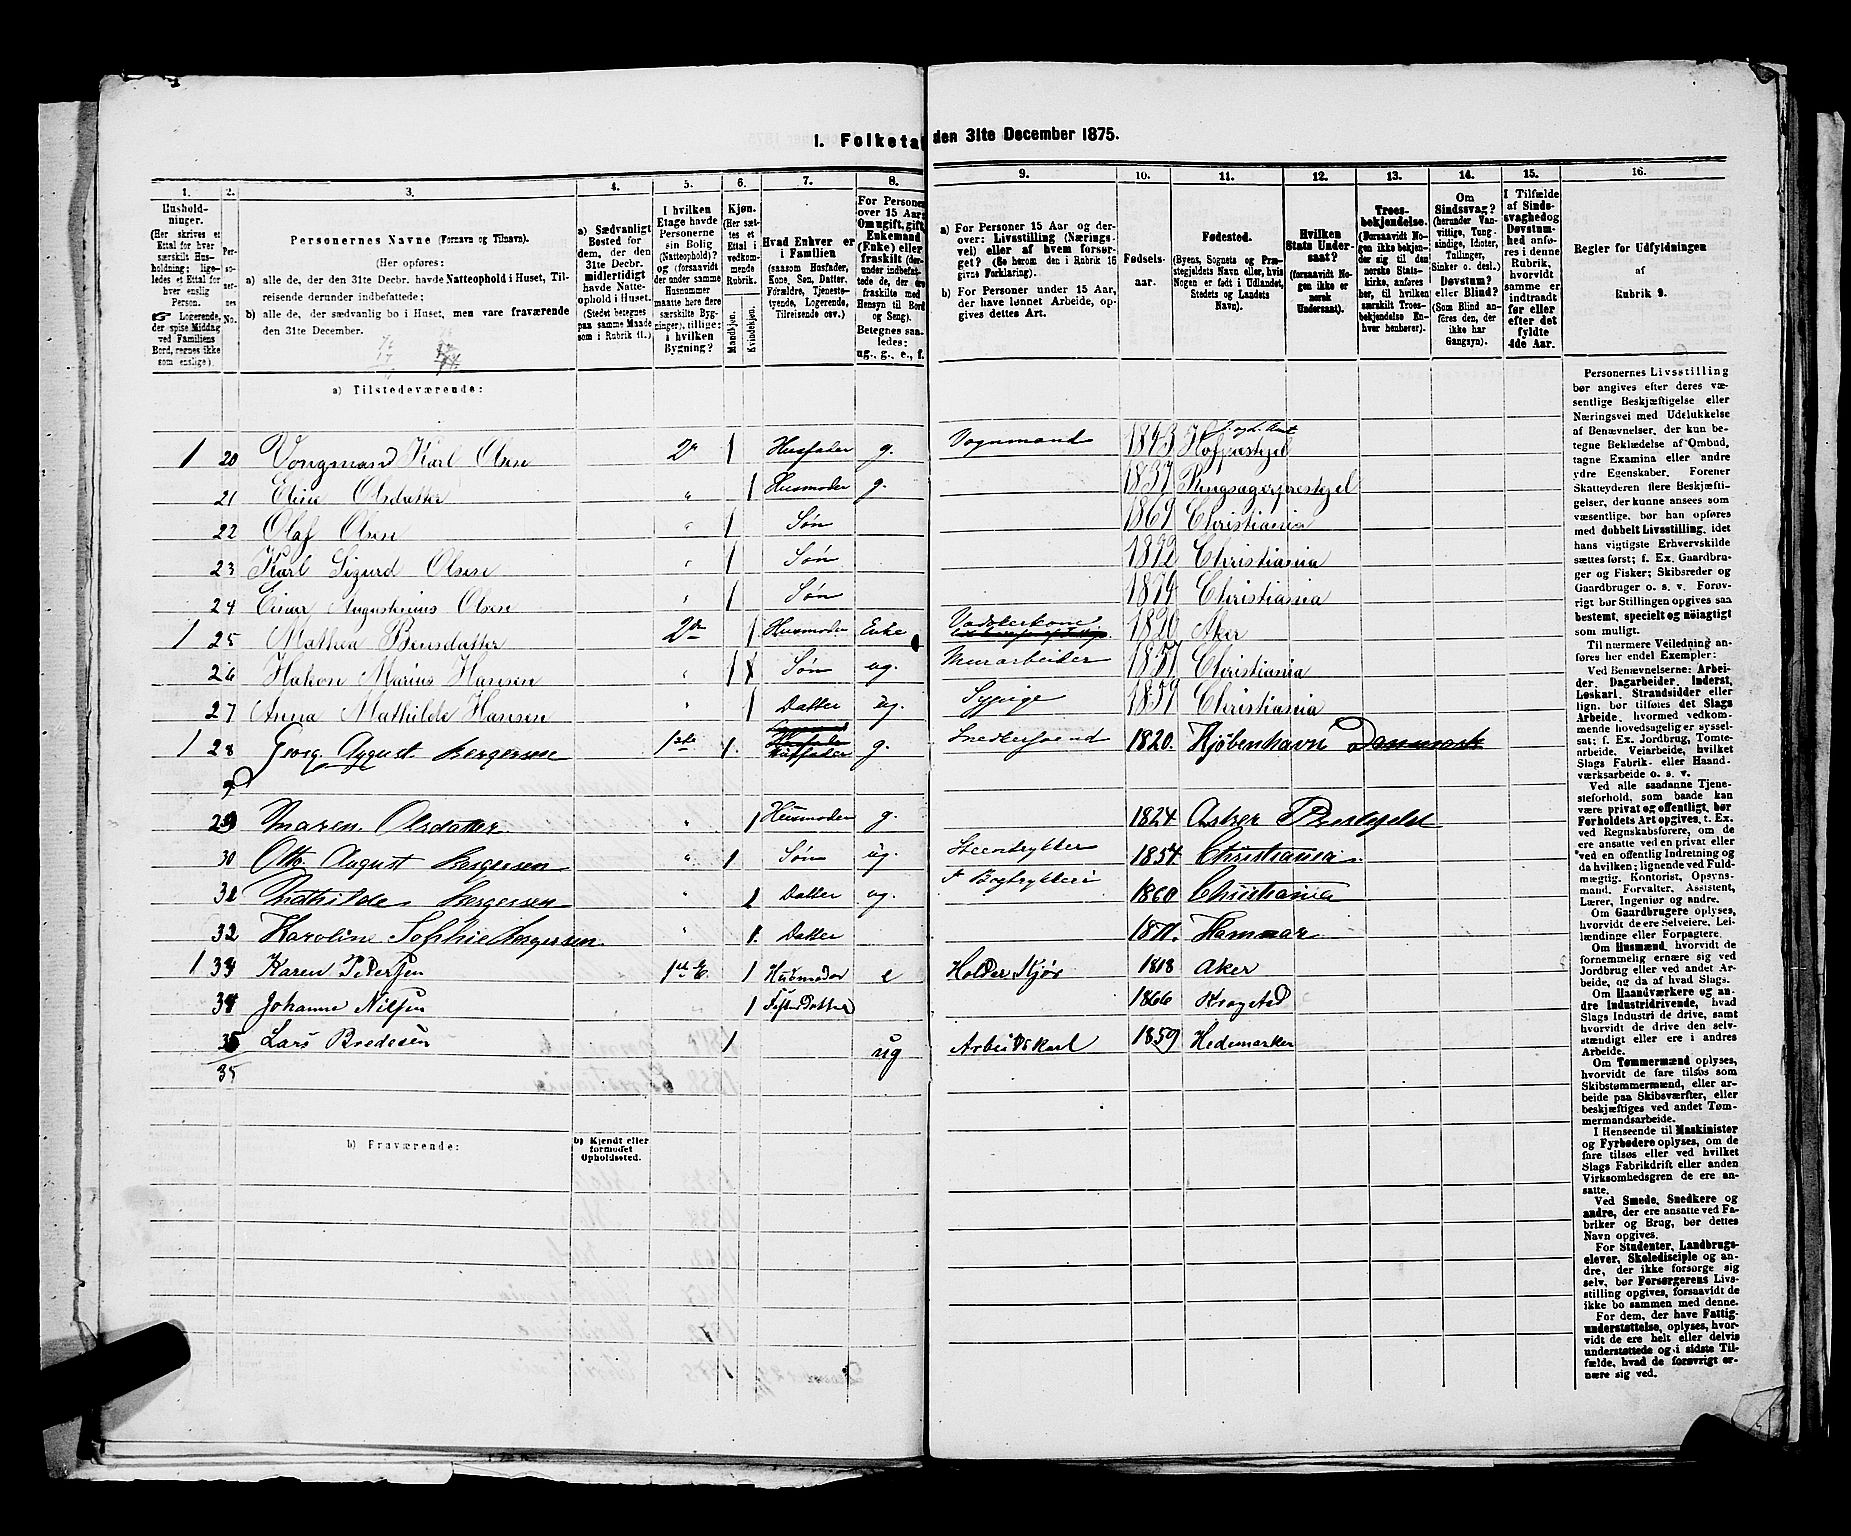 1. Folketal den 31te December 1875.
1. 2. 3. 4. 5. 6. 7. 8. 9. 10. 11. 12. 13. 14. 15. 16.
Husholdninger. (Her skrives et Ettal for hver særskilt Husholdning; ligeledes et Ettal for hver enslig Person. Logerende, der spise Middag ved Familiens Bord, regnes ikke som enslige).
Personernes No.
Personernes Navne (Fornavn og Tilnavn).
(Her opføres:
a) alle de, der den 31te Decbr. havde Natteophold i Huset, Tilreisende derunder indbefattede;
b) alle de, der sædvanlig bo i Huset, men vare fraværende den 31te December.
a) Sædvanligt Bosted for dem, der den 31te Decbr. midlertidigt havde Natteophold i Huset. (Stedet betegnes paa samme Maade som i Rubrik 11.)
I hvilken Etage havde Personerne sin Bolig (Natteophold)? og (forsaavidt der under samme Husnummer maatte høre flere særskilte Bygninger), tillige: i hvilken Bygning?
Kjøn. (Her sættes et Ettal i vedkommende Rubrik. Mandkjøn. Kvindekjøn.
Hvad Enhver er i Familien (saasom Husfader, Kone, Søn, Datter, Forældre, Tjenestetyende, Logerende, Tilreisende osv.)
For Personer over 15 Aar: Om ugift, gift, Enkemand (Enke) eller fraskilt (derunder indbefattede de, der ere fraskilte med Hensyn til Bord og Seng). Betegnes saaledes: ug., g., e., f.
a) For Personer 15 Aar og derover: Livsstilling (Næringsvei) eller af hvem forsørget? (Se herom den i Rubrik 16 givne Forklaring).
b) For Personer under 15 Aar, der have lønnet Arbeide, opgives dettes Art.
Fødselsaar.
Fødested. (Byens, Sognets og Præstegjeldets Navn eller, hvis Nogen er født i Udlandet, Stedets og Landets Navn).
Hvilken Stats Undersaat? (forsaavidt Nogen ikke er norsk Undersaat).
Troesbekjendelse. (Forsaavidt Nogen ikke bekjender sig til den norske Statskirke, anføres her, til hvilken særskilt Troesbekjendelse Enhver henhører).
Om Sindssvag? (herunder Vanvittige, Tungsindige, Idioter, Tullinger, Sinker o. desl.) Døvstum? eller Blind? (Som Blind anføres den, der ikke har Gangsyn).
I Tilfælde af Sindssvaghed og Døvstumhed anføres i denne Rubrik, hvorvidt samme er indtraadt før eller efter det fyldte 4de Aar.
Regler for Udfyldningen af Rubrik 9.
a) Tilstedeværende:
1 20 Vongmand Karl Olsen 2 1 Husfader g. Vognmand 1843 Hofpræstgjel
21 Eline Olsdatter " 1 Husmoder g. 1837 Ringsagerprestgjel
22 Olaf Olsen " 1 Søn 1869 Christiania
23 Karl Sigurd Olsen " 1 Søn 1872 Christiania
24 Einar Augustinius Olsen " 1 Søn 1874 Christiania
1 25 Mathea Bensdatter 2den 1 Husmoder Enke Vadskerkone 1820 Aker
26 Hakon Marius Hansen " 1 Søn ug. Murarbeider 1857 Christiania
27 Anna Mathilde Hansen " 1 Datter ug. Sypige 1859 Christiania
1 28 Georg August Bergersen 1ste 1. Husfader g. Snedkersvend 1820. Kjøbenhavn Danmark
29 Maren Olsdatter " 1 Husmoder g. 1824 Asker Prestegjeld
30 Otto August Bergersen " 1 Søn ug. Steentrykker 1854. Christiania.
31 Mathilde Bergersen " 1 Datter ug. Bogtrykkeri 1860 Christiania
32 Karoline Sophie Bergersen " 1. Datter 1871. Hammar
1 33 Karen Petersen 1ste E. 1 Husmoder e Holder Kjør 1818 Aker
34 Johanne Nilsen 1 Fosterdatter 1866 Krogsted
35 Lars Bredesen 1 ug Arbeidskarl 1859 Hedemarken
35
b) Fraværende:
b) Kjendt eller formodet Opholdssted.
Personernes Livsstilling
bør angives efter deres væsentlige Beskjæftigelse eller
Næringsvei med Udelukkelse
af Benævnelser, der kun betegne Beklædelse af Ombud,
tagne Examina eller andre
ydre Egenskaber. Forener
Skatteyderen flere Beskjæftigelser, der kunne ansees som
væsentlige, bør han opføres
med dobbelt Livsstilling, idet
hans vigtigste Erhvervskilde
sættes først; f. Ex. Gaardbruger og Fisker; Skibsreder og
Gaardbruger o. s. v. Forøvrigt bør Stillingen opgives saa
bestemt, specielt og nøiagtigt
som muligt.
Til nærmere Veiledning anføres her endel Exempler:
Ved Benævnelserne: Arbeider, Dagarbeider, Inderst,
Løskarl, Strandsidder eller
lign. bør tilføies det Slags
Arbeide, hvormed vedkommende hovedsagelig er sysselsat; f. Ex. Jordbrug, Tomtearbeide, Veiarbeide, hvilket
Slags Fabrik- eller Haandværksarbeide o. s. v.
Ved alle saadanne Tjenesteforhold, som baade kan
være privat og offentligt, bør
Forholdets Art opgives, t. Ex.
ved Regnskabsførere, om de
ere ansatte ved en privat eller
ved en offentlig Indretning og
da hvilken; lignende ved Fuldmægtig, Kontorist, Opsynsmand, Forvalter, Assistent,
Lærer, Ingeniør og andre.
Om Gaardbrugere oplyses,
hvorvidt de ere Selveiere, Leilændinge eller Forpagtere.
Om Husmænd, hvorvidt de
fornemmelig ernære sig ved
Jordbrug eller ved andet Arbeide, og da af hvad Slags.
Om Haandværkere og andre Industridrivende, hvad
Slags Industri de drive, samt
hvorvidt de drive den selvstændigt eller ere i andres
Arbeide.
Om Tømmermænd oplyses,
hvorvidt de fare tilsøs som
Skibstømmermænd, eller arbeide paa Skibsværfter, eller
beskjæftiges ved andet Tømmermandsarbeide.
I Henseende til Maskinister
og Fyrbødere oplyses, om de
fare tilsøs eller ved hvilket
Slags Fabrikdrift eller anden
Virksomhedsgren de ere ansatte.
Ved Smede, Snedkere og
andre, der ere ansatte ved Fabriker og Brug, bør dettes
Navn opgives.
For Studenter, Landbrugselever, Skoledisciple og andre, der ikke forsørge sig
selv, bør Forsørgerens Livsstilling opgives, forsaavidt de
ikke bo sammen med denne.
For dem, der have Fattigunderstøttelse, oplyses, hvorvidt de ere helt eller delvis
understøttede og i sidste Tilfælde, hvad de forøvrigt ernære sig ved.